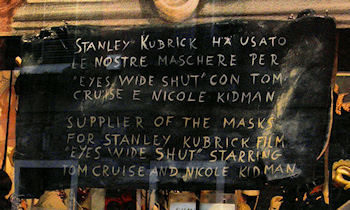 STANLEY KUBRICK HA USATO
LE NOSTRE MASCHERE PER
"EYES WIDE SHUT" CON TOM
CRUISE E NICOLE KIDMAN.
SUPPLIER OF THE MASKS
FOR STANLEY KUBRICK FILM
"EYES WIDE SHUT" STARRING
TOM CRUISE AND NICOLE KIDMAN